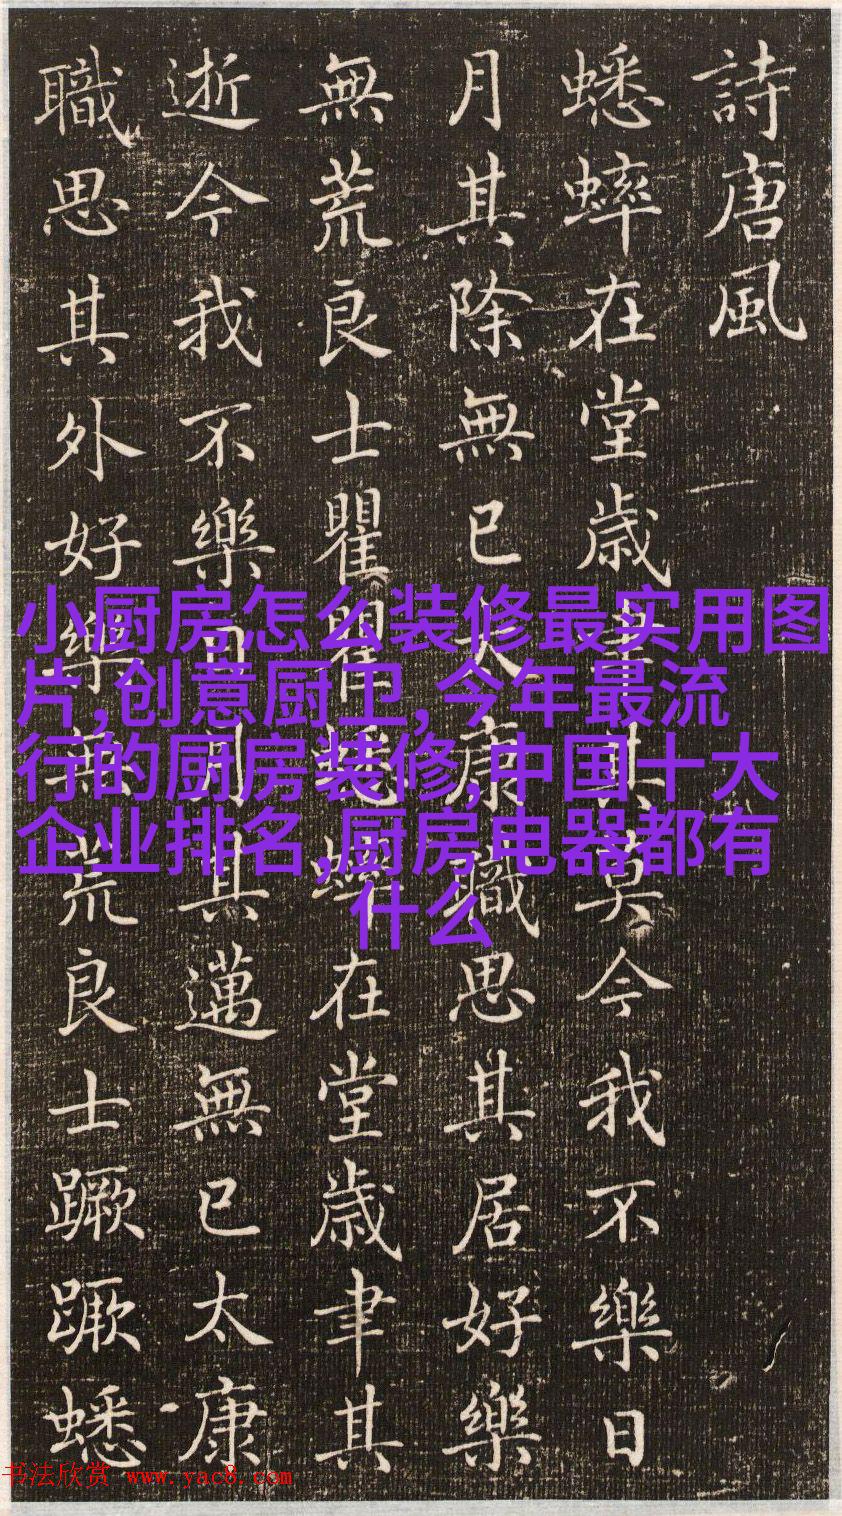 詩唐風
蟋蟀在堂歲聿其莫今我不樂日
月其除無已大康職思其居好樂
無荒良士瞿瞿蟋蟀在堂歲聿其
逝今我不樂日月其邁無已太康
職思其外好樂無荒良士蹶蹶蟋
小厨房怎么装修最实用图
片,创意厨卫,今年最流
行的厨房装修,中国十大
企业排名,厨房电器都有
什么
书法欣赏 www.yac8.com